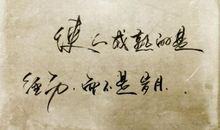 使人成熟的是
经历，而不是岁月．